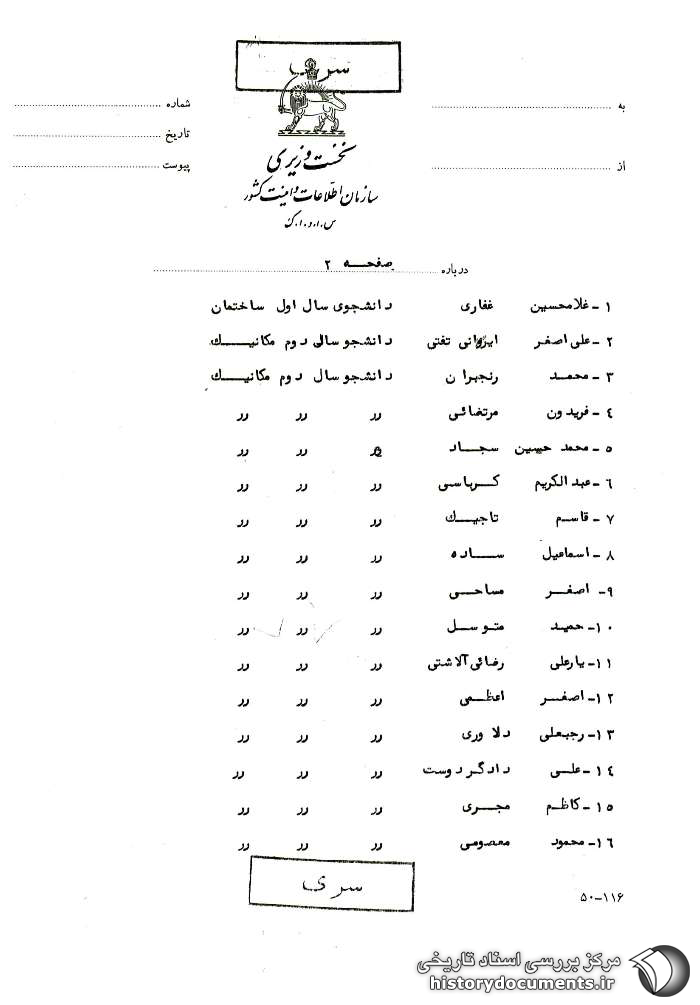 سری
به
شماره
تاریخ
از
پیوست
نخست وزیری
سازمان اطلاعات و امنیت کشور
س.ا.و.ا.ک
درباره صفحه ۲
۱ - غلامحسین غفاری دانشجوی سال اول ساختمان
۲ - علی اصغر ایروانی تفتی دانشجو سال دوم مکانیک
۳ - محمد رنجبران دانشجو سال دوم مکانیک
۴ - فریدون مرتضائی رر رر رر
۵ - محمد حسین سجاد رر رر رر
۶ - عبدالکریم کرباسی رر رر رر
۷ - قاسم تاجیک رر رر رر
۸ - اسماعیل ساده رر رر رر
۹ - اصغر مساحی رر رر رر
۱۰ - حمید متوسل رر رر رر
۱۱ - یارعلی رضائی آلاشتی رر رر رر
۱۲ - اصغر اعظمی رر رر رر
۱۳ - رجبعلی دلاوری رر رر رر
۱۴ - علی دادگر دوست رر رر رر
۱۵ - کاظم مجری رر رر رر
۱۶ - محمود معصومی رر رر رر
سری
۵۰-۱۱۶
مرکز بررسی اسناد تاریخی
historydocuments.ir